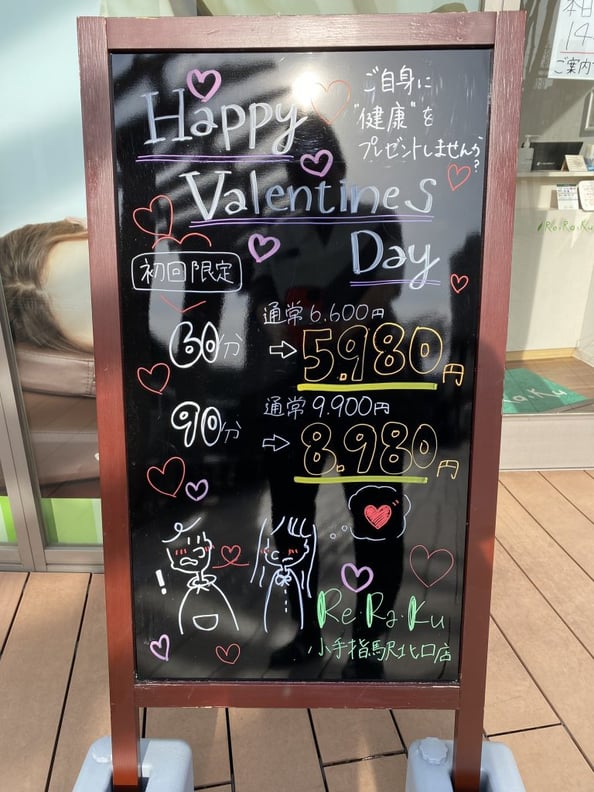 Happy
Valentines
Day
ご自身に
"健康"を
プレゼントしませんか?
初回限定
通常6.600円
60分 ⇨ 5.980円
通常9.900円
90分 ⇨ 8.980円
!
Re.Ra.Ku
小手指駅北口店
本日
14
ご案内
Re.Ra.Ku
Ra Ku